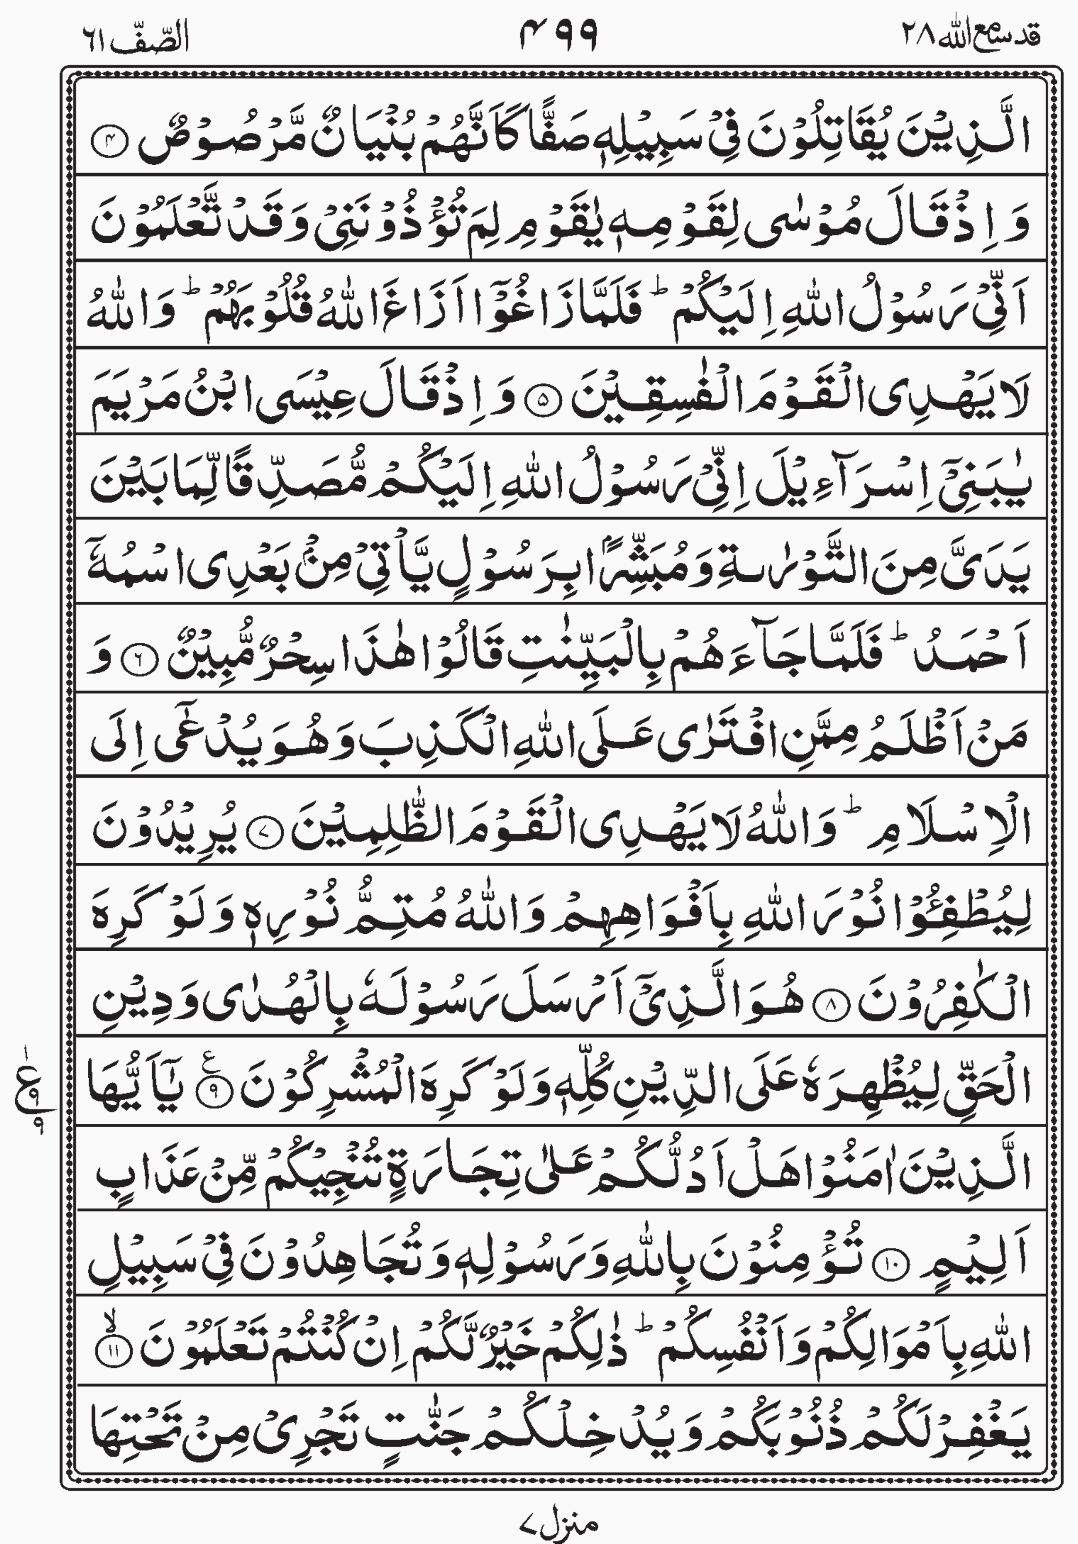 قد سمع الله ٢٨
٤٩٩
الصّفّ ٦١
الَّذِيْنَ يُقَاتِلُوْنَ فِيْ سَبِيْلِهٖ صَفًّا كَاَنَّهُمْ بُنْيَانٌ مَّرْصُوْصٌ ۝۴
وَ اِذْ قَالَ مُوْسٰى لِقَوْمِهٖ يٰقَوْمِ لِمَ تُؤْذُوْنَنِيْ وَقَدْ تَّعْلَمُوْنَ
اَنِّيْ رَسُوْلُ اللّٰهِ اِلَيْكُمْ ؕ فَلَمَّا زَاغُوْٓا اَزَاغَ اللّٰهُ قُلُوْبَهُمْ ؕ وَاللّٰهُ
لَا يَهْدِى الْقَوْمَ الْفٰسِقِيْنَ ۝۵ وَ اِذْ قَالَ عِيْسَى ابْنُ مَرْيَمَ
يٰبَنِيْٓ اِسْرَآءِيْلَ اِنِّيْ رَسُوْلُ اللّٰهِ اِلَيْكُمْ مُّصَدِّقًا لِّمَا بَيْنَ
يَدَيَّ مِنَ التَّوْرٰىةِ وَمُبَشِّرًۢا بِرَسُوْلٍ يَّاْتِيْ مِنْۢ بَعْدِى اسْمُهٗٓ
اَحْمَدُ ؕ فَلَمَّا جَآءَهُمْ بِالْبَيِّنٰتِ قَالُوْا هٰذَا سِحْرٌ مُّبِيْنٌ ۝۶ وَ
مَنْ اَظْلَمُ مِمَّنِ افْتَرٰى عَلَى اللّٰهِ الْكَذِبَ وَهُوَ يُدْعٰٓى اِلَى
الْاِسْلَامِ ؕ وَاللّٰهُ لَا يَهْدِى الْقَوْمَ الظّٰلِمِيْنَ ۝۷ يُرِيْدُوْنَ
لِيُطْفِـُٔوْا نُوْرَ اللّٰهِ بِاَفْوَاهِهِمْ وَاللّٰهُ مُتِمُّ نُوْرِهٖ وَلَوْ كَرِهَ
الْكٰفِرُوْنَ ۝۸ هُوَ الَّذِيْٓ اَرْسَلَ رَسُوْلَهٗ بِالْهُدٰى وَدِيْنِ
الْحَقِّ لِيُظْهِرَهٗ عَلَى الدِّيْنِ كُلِّهٖ وَلَوْ كَرِهَ الْمُشْرِكُوْنَ ۝۹ ع يٰٓاَيُّهَا
١ ع ٩ ٩
الَّذِيْنَ اٰمَنُوْا هَلْ اَدُلُّكُمْ عَلٰى تِجَارَةٍ تُنْجِيْكُمْ مِّنْ عَذَابٍ
اَلِيْمٍ ۝۱۰ تُؤْمِنُوْنَ بِاللّٰهِ وَرَسُوْلِهٖ وَتُجَاهِدُوْنَ فِيْ سَبِيْلِ
اللّٰهِ بِاَمْوَالِكُمْ وَاَنْفُسِكُمْ ؕ ذٰلِكُمْ خَيْرٌ لَّكُمْ اِنْ كُنْتُمْ تَعْلَمُوْنَ ۝۱۱ۙ
يَغْفِرْ لَكُمْ ذُنُوْبَكُمْ وَيُدْخِلْكُمْ جَنّٰتٍ تَجْرِيْ مِنْ تَحْتِهَا
منزل ٧